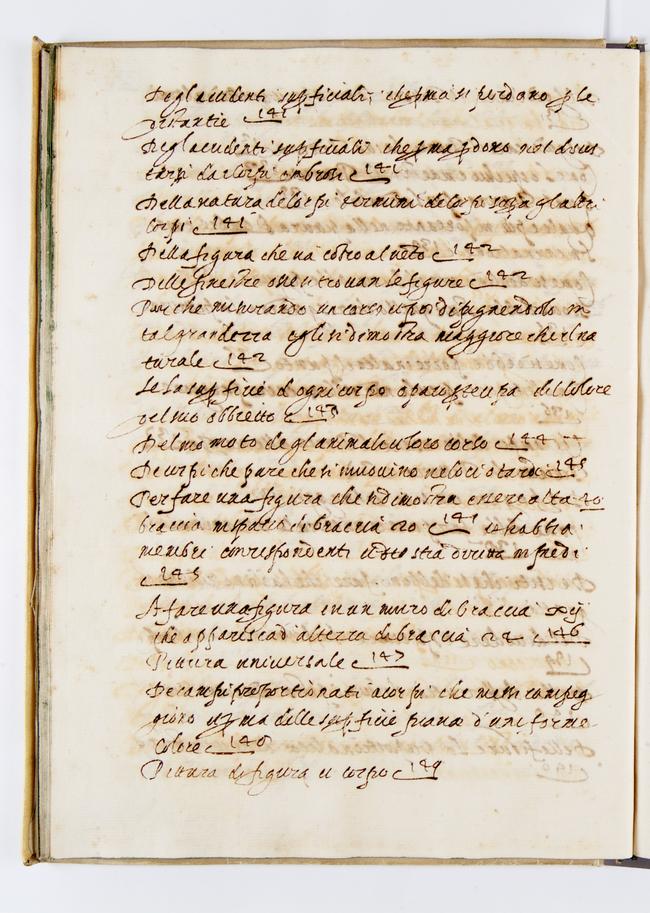 Deglacidenti supficiali, che pma si perdono p le
distantie 141
Deglacidenti supficiali che pma pdono nel discos
tarsi da corpi ombrosi 141
Della natura de corpi termini de corpi sopra gl altri
corpi 141
Della figura che va cotro al veto 142
Delle finestre ove si trovan le figure 142
Perche misurando un corpo e poi disegnendolo in
tal grandezza egli si dimostra maggiore che il na
turale 142
Se la supficie d ogni corpo oparo ptecipa del colore
del suo obbietto 143
Del mo moto de gl animali e loro corso 144
De corpi che pare che si muovino veloci o tardi 145
Per fare una figura che si dimostra essere alta 40
braccia in spatio di braccia 20 141 e habbia
membri conrespondenti e stia dritta in piedi
145
A fare una figura in un muro di braccia xij
che apparisca d alterza di braccia 24 146
Pittura universale 147
De campi proportionati a corpi che in essi campeg
giono e pma delle supficie piane d uniforme
colore 148
Pittura di figura e corpo 149